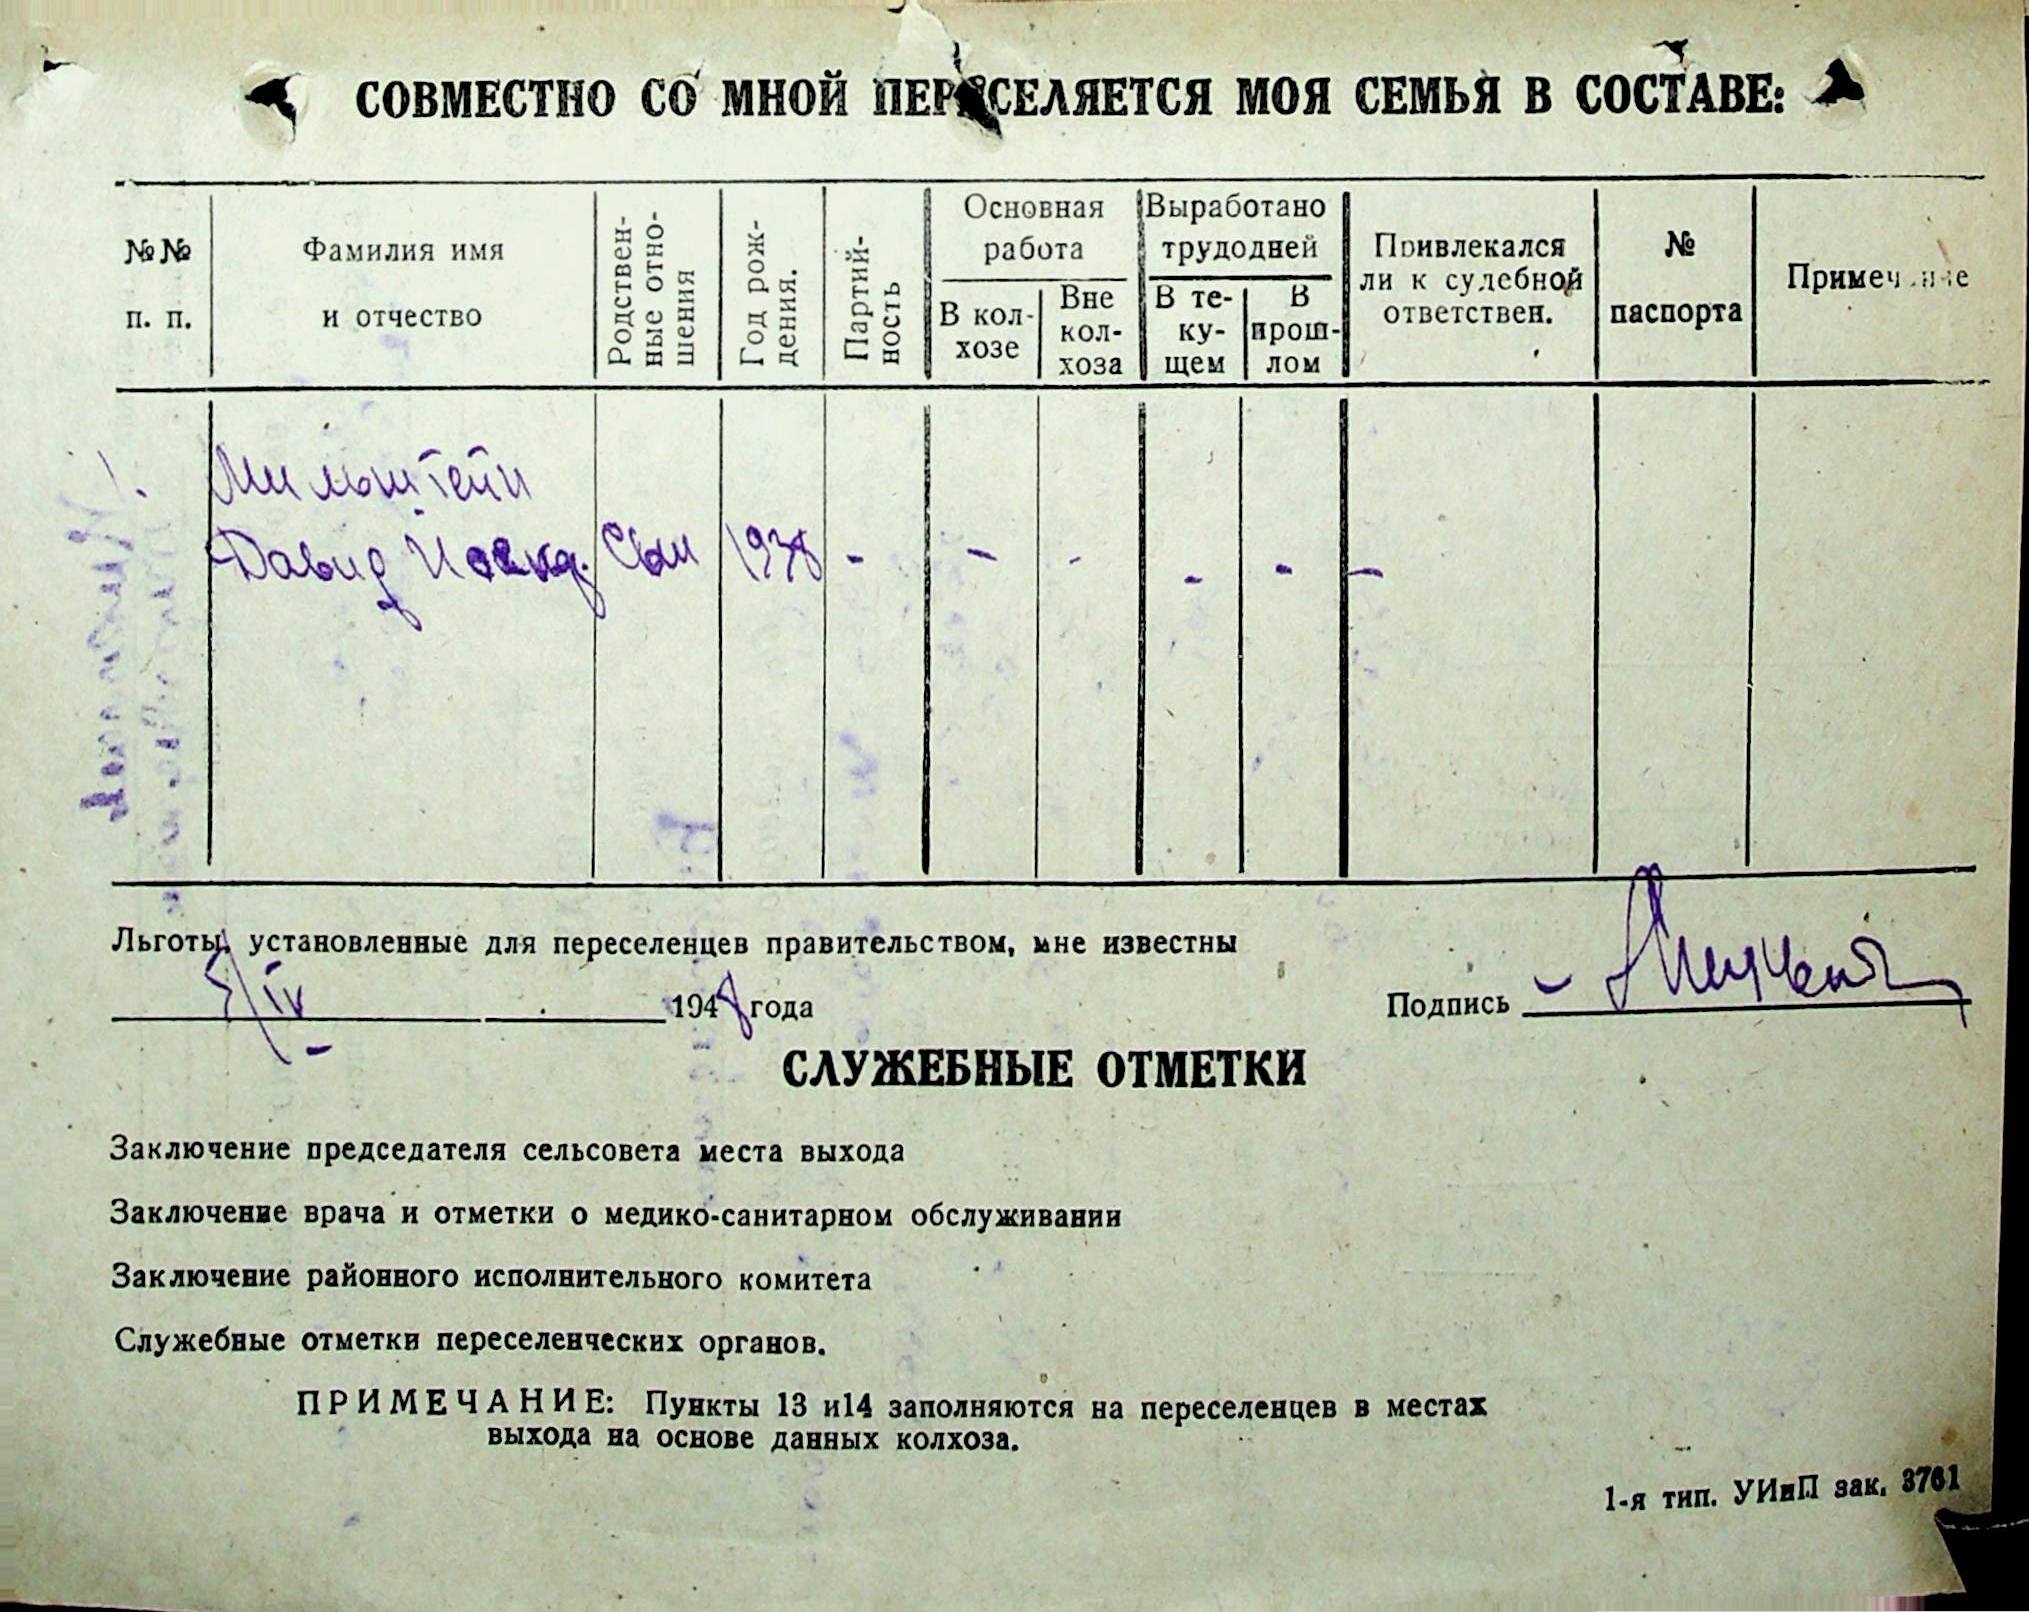 СОВМЕСТНО СО МНОЙ ПЕРЕСЕЛЯЕТСЯ МОЯ СЕМЬЯ В СОСТАВЕ:
№№ п. п.
Фамилия имя и отчество
Родствен-
ные отно-
шения
Год рож-
дения.
Партий-
ность
Основная
работа
В кол-
хозе
Вне
кол-
хоза
Выработано
трудодней
В те-
ку-
щем
В
прош-
лом
Привлекался
ли к судебной
ответствен.
№
паспорта
Примечание
1.
Давид
Сын 1938 - - - - - -
Льготы, установленные для переселенцев правительством, мне известны
5/IV 1948 года
Подпись
СЛУЖЕБНЫЕ ОТМЕТКИ
Заключение председателя сельсовета места выхода
Заключение врача и отметки о медико-санитарном обслуживании
Заключение районного исполнительного комитета
Служебные отметки переселенческих органов.
ПРИМЕЧАНИЕ: Пункты 13 и14 заполняются на переселенцев в местах
выхода на основе данных колхоза.
1-я тип. УИиП зак. 3761